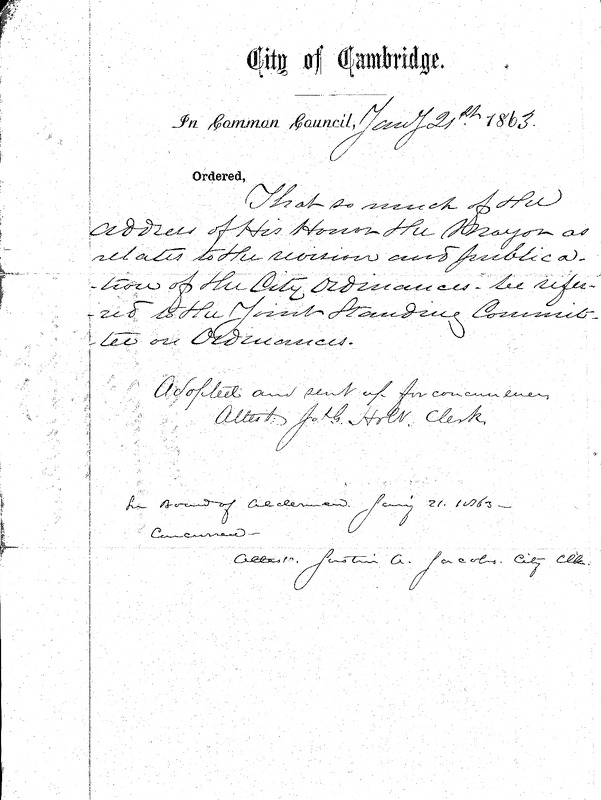 City of Cambridge.
In Common Council, Jany 21st 1863.
Ordered,
That so much of the
address of His Honor the Mayor as
relates to the revision and publica-
-tion of the City Ordinances - be refer-
-red to the Joint Standing Commit-
-tee on Ordinances.
Adopted and sent up for concurrence
Attest. Clerk
In Board of Aldermen. Jany 21. 1863 -
Concurred -
Attest. Justin A. Jacobs. City Clk.